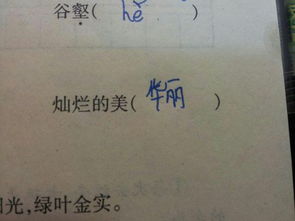 谷壑(hè)
灿烂的美(华丽)
光,绿叶金实。